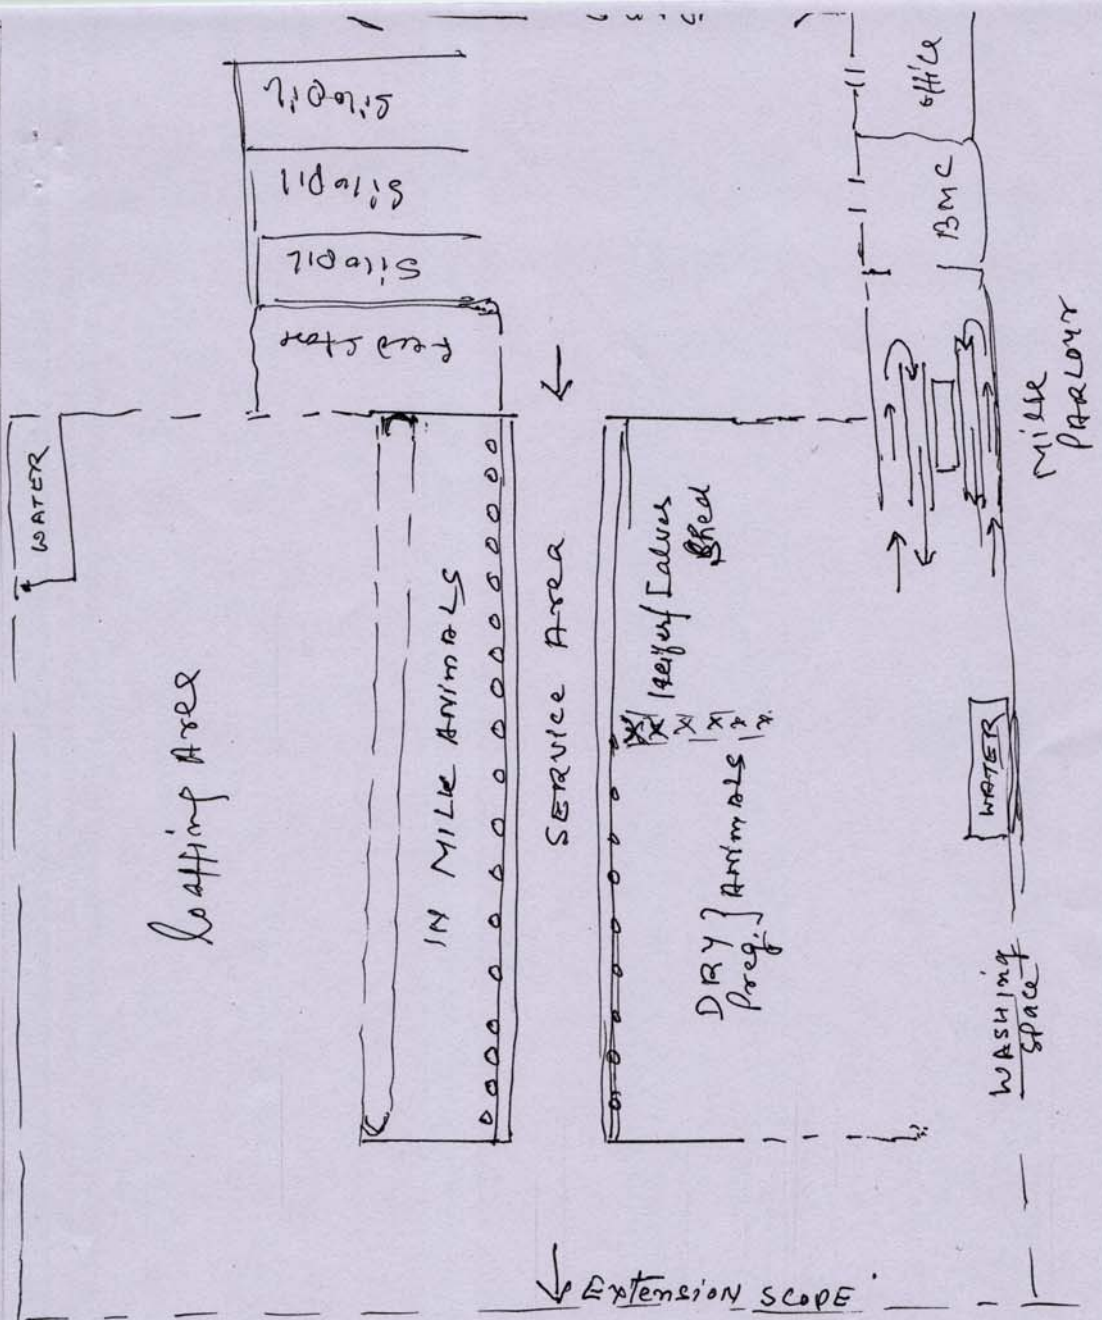 office
Silopit
Silopit
Silopit
Feed Store
BMC
WATER
Milk
PARLOUR
Loaffing Area
IN MILK ANIMALS
SERVICE Area
Heifer/Calves
Shed
DRY } ANIMALS
Preg. }
WATER
WASHING
SPace
Extension SCOPE